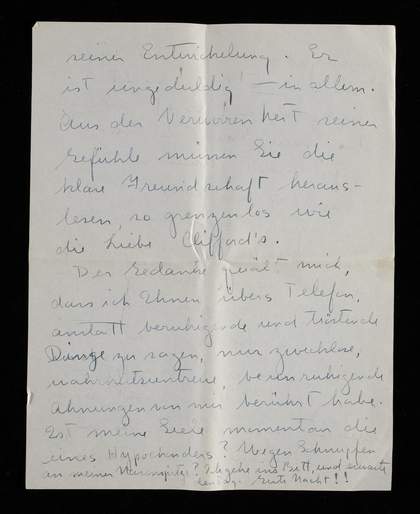 seiner Entwickelung. Er
ist ungeduldig – in allem.
Aus der Verworrenheit seiner
Gefühle müssen Sie die
klare Freundschaft heraus-
lesen, so grenzenlos wie
die Liebe Clifford's.
Der Gedanke quält mich,
dass ich Ihnen übers Telefon,
anstatt beruhigende und tröstende
Dinge zu sagen, nur zwecklose,
beunruhigende
Ahnungen von mir berührt habe.
Ist meine Seele momentan die
eines Hypochonders? Wegen Schnupfen
an meiner ? Ich gehe ins Bett, und erwarte
Gute Nacht!!